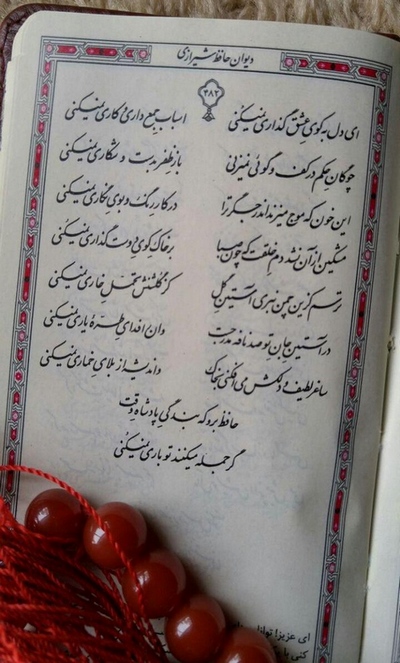 دیوان حافظ شیرازی
۴۸۲
ای دل به کوی عشق گذاری نمیکنی اسباب جمع داری و کاری نمیکنی
چوگان حکم در کف و گوئی نمیزنی باز ظفر بدست و شکاری نمیکنی
این خون که موج میزند اندر جگر ترا در کار رنگ و بوی نگاری نمیکنی
مشکین از آن نشد دم خلقت که چون صبا بر خاک کوی دوست گذاری نمیکنی
ترسم کزین چمن نبری آستین گل کز گلشنش تحمل خاری نمیکنی
در آستین جان تو صد نافه مدرجست وان را فدای طره یاری نمیکنی
ساغر لطیف و دلکش و می افکنی بخاک واندیشه از بلای خماری نمیکنی
حافظ برو که بندگی پادشاه وقت
گر جمله میکنند تو باری نمیکنی
ای عزیز! توانا
کنی با